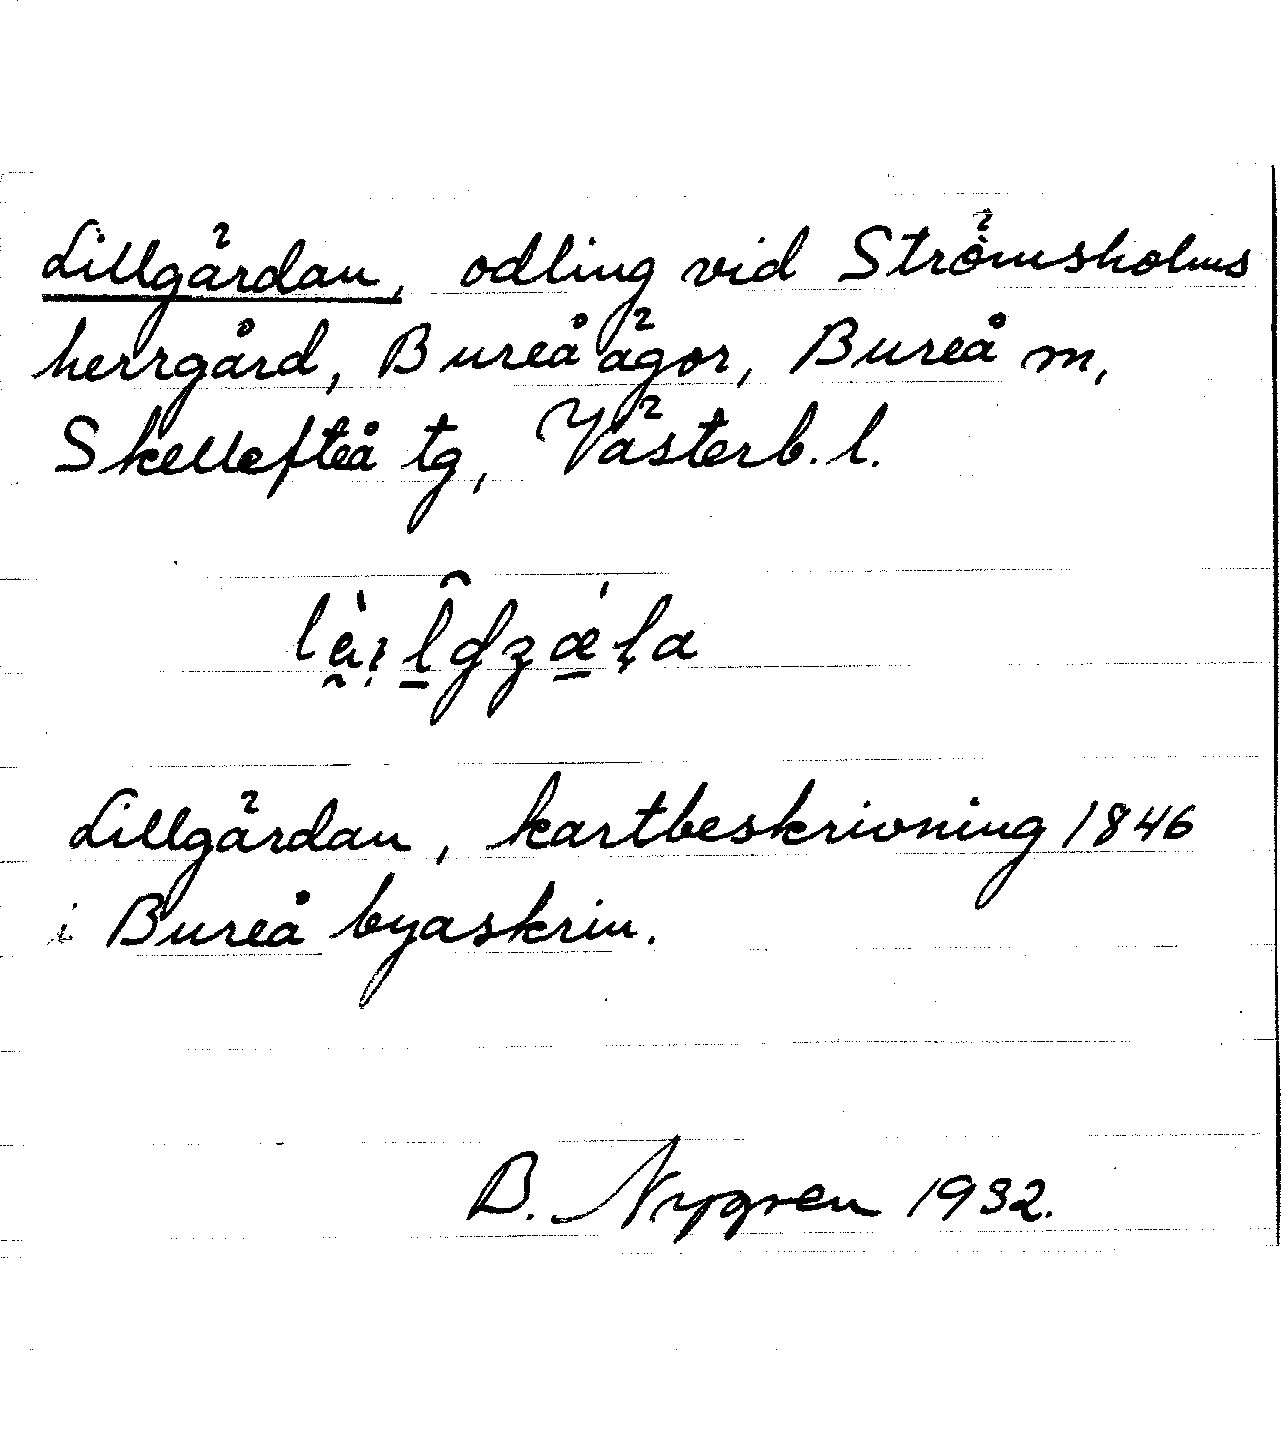 Lillgärdan, odling vid Strömsholms
herrgård, Bureå ägor, Bureå m,
Skellefteå tg, Västerb. l.
Lillgärdan, kartbeskrivning 1846
i Bureå byaskrin.
B. Nygren 1932.